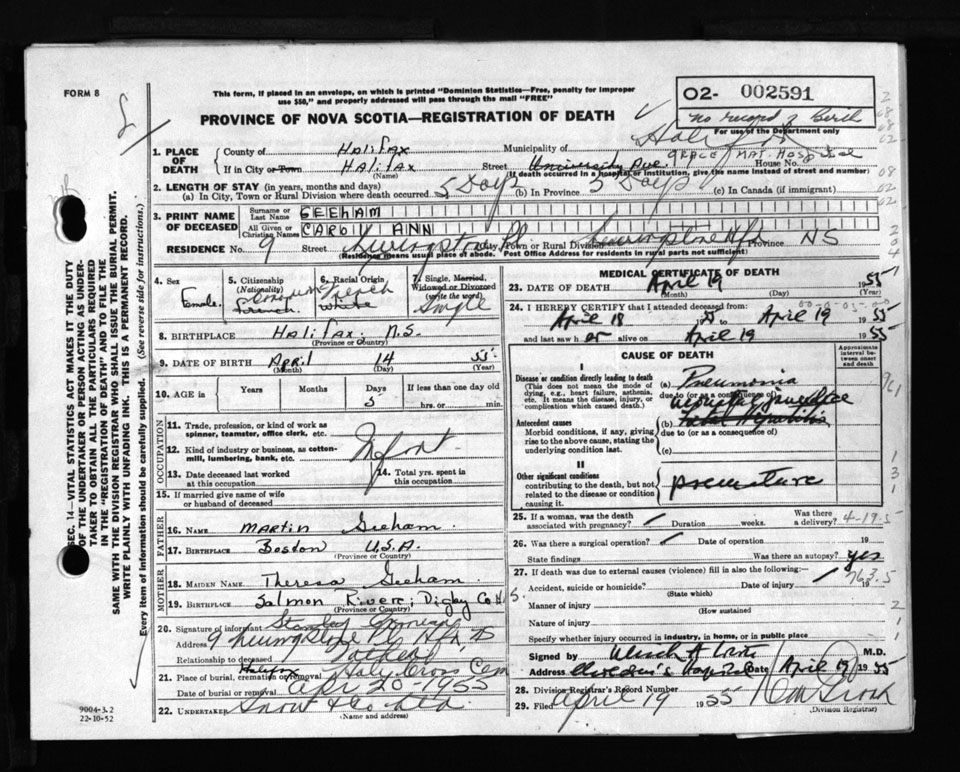 FORM 8
This form, if placed in an envelope, on which is printed "Dominion Statistics—Free, penalty for improper
use $50," and properly addressed will pass through the mail "FREE"
O2- 002591
no record of Birth
For use of the Department only
PROVINCE OF NOVA SCOTIA—REGISTRATION OF DEATH
1. PLACE OF DEATH
County of Halifax
Municipality of
If in City or Town Halifax
(Name)
Street University Ave. GRACE MAT. HOSPITAL House No.
(If death occurred in a hospital or institution, give the name instead of street and number)
2. LENGTH OF STAY (in years, months and days)
(a) In City, Town or Rural Division where death occurred 5 Days (b) In Province 5 Days (c) In Canada (if immigrant)
3. PRINT NAME OF DECEASED
Surname or Last Name GEEHAM
All Given or Christian Names CAROL ANN
RESIDENCE No. 9 Street Livingstone Pl City, Town or Rural Division Province NS
(Residence means usual place of abode. Post Office Address for residents in rural parts not sufficient)
4. Sex
Female
5. Citizenship (Nationality)
French
6. Racial Origin
French
White
7. Single, Married, Widowed or Divorced
(write the word)
Single
8. BIRTHPLACE Halifax. N.S.
(Province or Country)
9. DATE OF BIRTH April 14 55
(Month) (Day) (Year)
10. AGE in Years Months Days 5
If less than one day old
hrs. or min.
OCCUPATION
11. Trade, profession, or kind of work as
spinner, teamster, office clerk, etc.
12. Kind of industry or business, as cotton-
mill, lumbering, bank, etc.
Infant
13. Date deceased last worked
at this occupation
14. Total yrs. spent in
this occupation
15. If married give name of wife
or husband of deceased
FATHER
16. NAME Martin Geeham
17. BIRTHPLACE Boston U.S.A.
(Province or Country)
MOTHER
18. MAIDEN NAME Theresa Geeham
19. BIRTHPLACE Salmon River; Digby Co N.S.
(Province or Country)
20. Signature of informant Stanley
Address 9 Livingstone Pl Hfx NS
Relationship to deceased
21. Place of burial, cremation or removal Halifax Holy Cross Cem
Date of burial or removal Apr 20 - 1955
22. UNDERTAKER Snow & Co Ltd
(Name and address)
MEDICAL CERTIFICATE OF DEATH
23. DATE OF DEATH April 19 1955
(Month) (Day) (Year)
24. I HEREBY CERTIFY that I attended deceased from:
April 18 1955 to April 19 1955
and last saw h er alive on April 19 1955
CAUSE OF DEATH
Approximate interval between onset and death
I
Disease or condition directly leading to death
(This does not mean the mode of
dying, e.g., heart failure, asthenia,
etc. It means the disease, injury, or
complication which caused death.)
(a) Pneumonia
due to (or as a consequence of)
Antecedent causes
Morbid conditions, if any, giving
rise to the above cause, stating the
underlying condition last.
(b)
due to (or as a consequence of)
(c)
II
Other significant conditions
contributing to the death, but not
related to the disease or condition
causing it.
premature
25. If a woman, was the death
associated with pregnancy? Duration weeks. Was there a delivery?
26. Was there a surgical operation? Date of operation 19
State findings Was there an autopsy? yes
27. If death was due to external causes (violence) fill in also the following:—
Accident, suicide or homicide? Date of injury 19
(State which)
763.5
Manner of injury
(How sustained)
Nature of injury
Specify whether injury occurred in industry, in home, or in public place
Signed by M.D.
Address Children's Hospital Date April 19 1955
28. Division Registrar's Record Number
29. Filed April 19 1955
(Division Registrar)
9004-3.2
22-10-52
SEC. 14—VITAL STATISTICS ACT MAKES IT THE DUTY
OF THE UNDERTAKER OR PERSON ACTING AS UNDER-
TAKER TO OBTAIN ALL THE PARTICULARS REQUIRED
IN THE "REGISTRATION OF DEATH" AND TO FILE THE
SAME WITH THE DIVISION REGISTRAR WHO SHALL ISSUE THE BURIAL PERMIT.
WRITE PLAINLY WITH UNFADING INK. THIS IS A PERMANENT RECORD.
Every item of information should be carefully supplied. (See reverse side for instructions.)